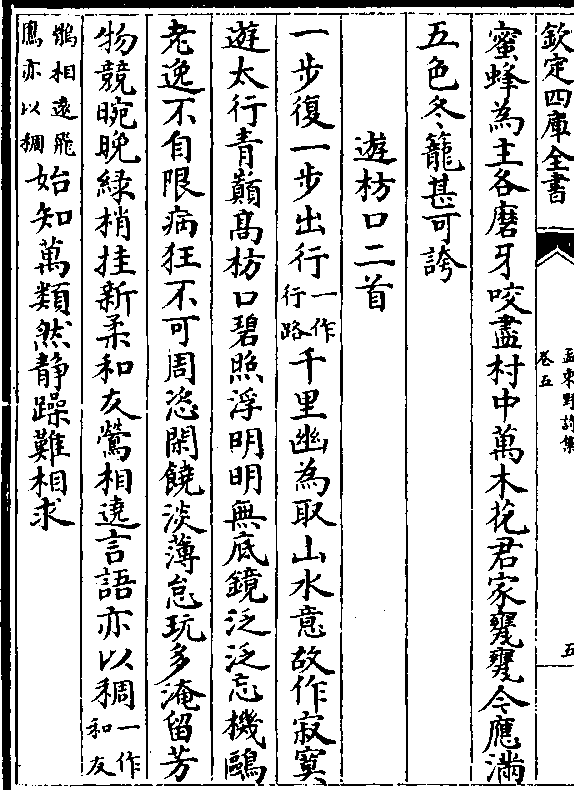 欽定四庫全書
孟東野詩集
卷五
五
蜜蜂為主各磨牙咬盡村中萬木花君家甕甕今應滿
五色冬籠甚可誇
遊枋口二首
一步復一步出行一作行路千里幽為取山水意故作寂寞
遊太行青巔髙枋口碧照浮明明無底鏡泛泛忘機鷗
老逸不自限病狂不可周恣閑饒淡薄怠玩多淹留芳
物競晼晚緑梢挂新柔和友鶯相遶言語亦以稠一作和友
鶻相遠飛鳳亦以稠始知萬類然静躁難相求